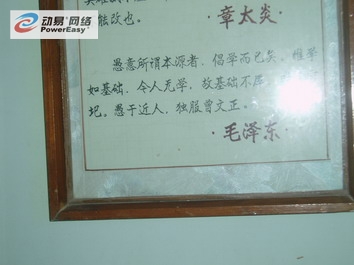 动易网络
PowerEasy®
能改也。
·章太炎·
愚意所谓本源者，倡学而已矣。惟学
如基础，今人无学，故基础不厚，
圮。愚于近人，独服曾文正。
·毛泽东·